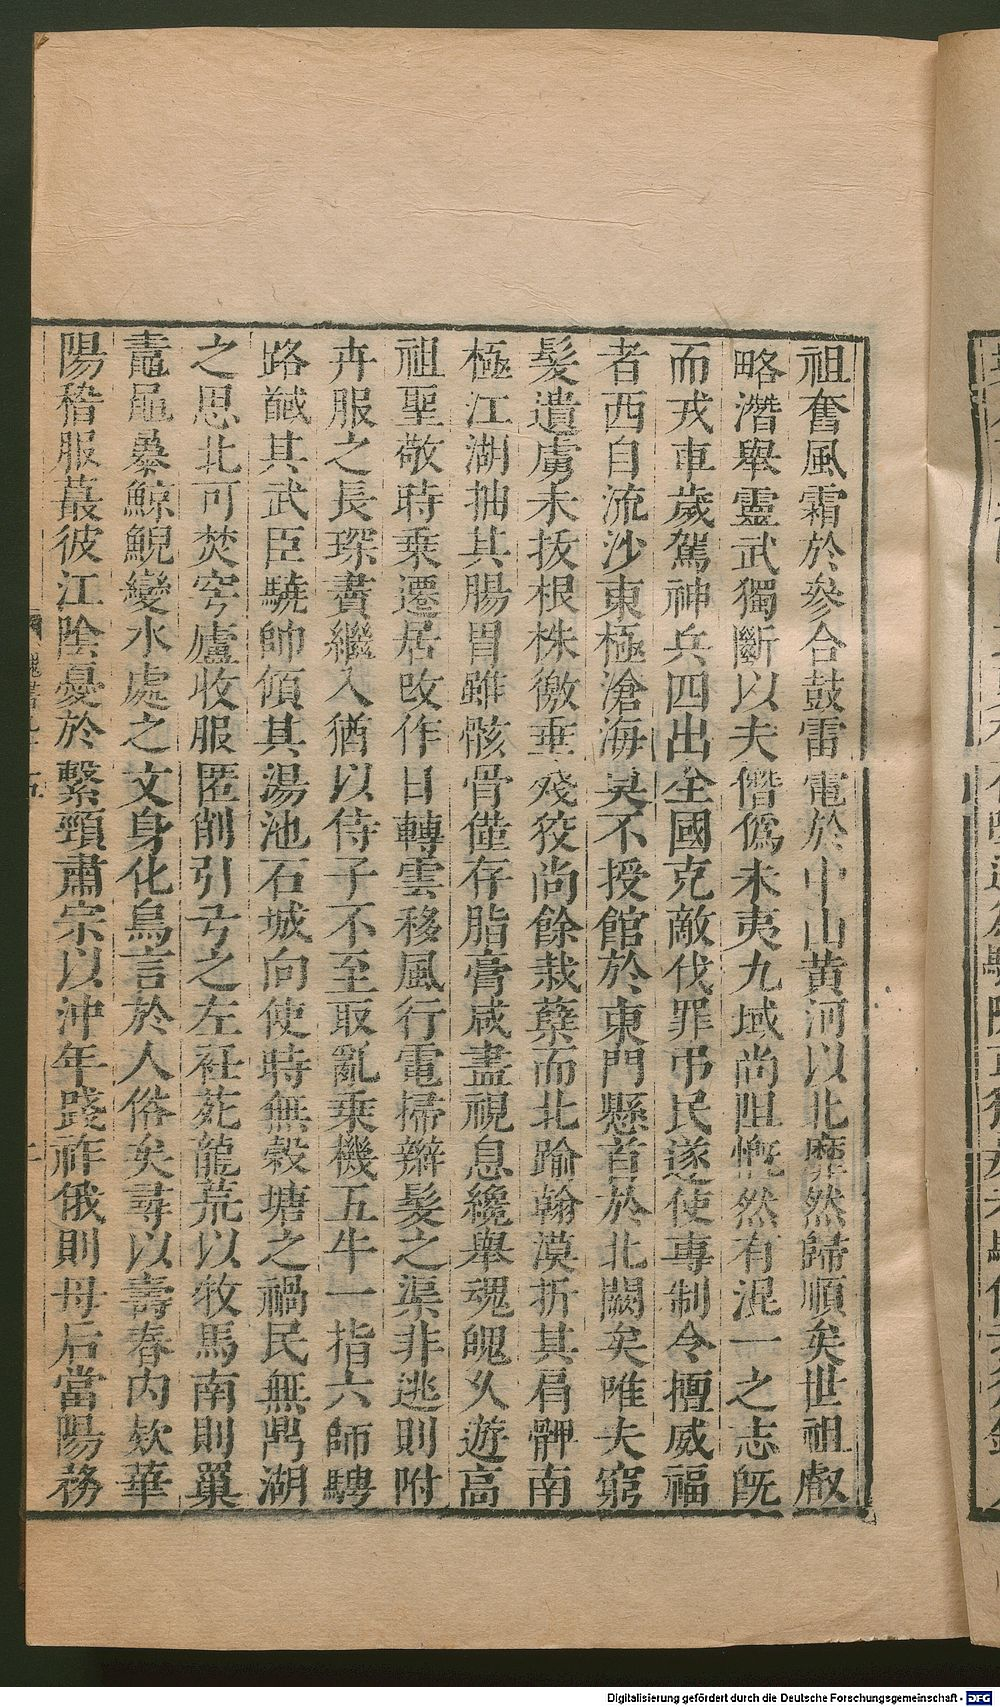 祖奮風霜於參合鼓雷電於中山黃河以北靡然歸順矣世祖叡
略潛舉靈武獨斷以夫僭僞未夷九域尚阻慨然有混一之志旣
而戎車歲駕神兵四出全國克敵伐罪弔民遂使專制令擅威福
者西自流沙東極滄海莫不授館於東門懸首於北闕矣唯夫窮
髮遺虜未拔根株徼垂殘狡尚餘栽櫱而北踰翰漠折其肩髀南
極江湖抽其腸胃雖骸骨僅存脂膏咸盡視息纔舉魂魄久遊高
祖聖敬時乗遷居改作日轉雲移風行電掃辮髮之渠非逃則附
卉服之長琛賮繼入猶以侍子不至取亂乗機五牛一指六師騁
路馘其武臣驍帥傾其湯池石城向使時無穀塘之禍民無鼎湖
之思北可焚穹廬收服匿削引弓之左衽苑龍荒以牧馬南則巢
鼃黽暴鯨鯢變水處之文身化鳥言於人俗矣尋以壽春内欵華
陽稽服蕞彼江陰憂於繫頸肅宗以沖年踐祚俄則母后當陽務
魏書九十五
Digitalisierung gefördert durch die Deutsche Forschungsgemeinschaft - DFG